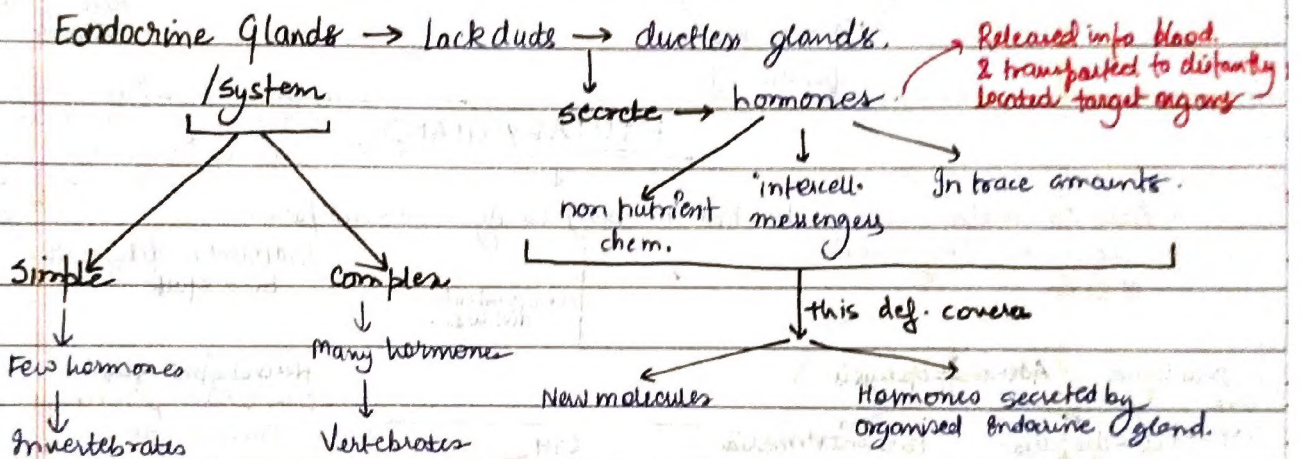 Eondocrine Glands → Lack ducts → ductless glands.
/system
secrete → hormones
Released into blood
& transported to distantly
located target organs
non nutrient
chem.
intercell.
messengers
In trace amounts.
Simple
Complex
this def. covers
Few hormones
Many hormones
New molecules
Hormones secreted by
organised Endocrine gland.
Invertebrates
Vertebrates